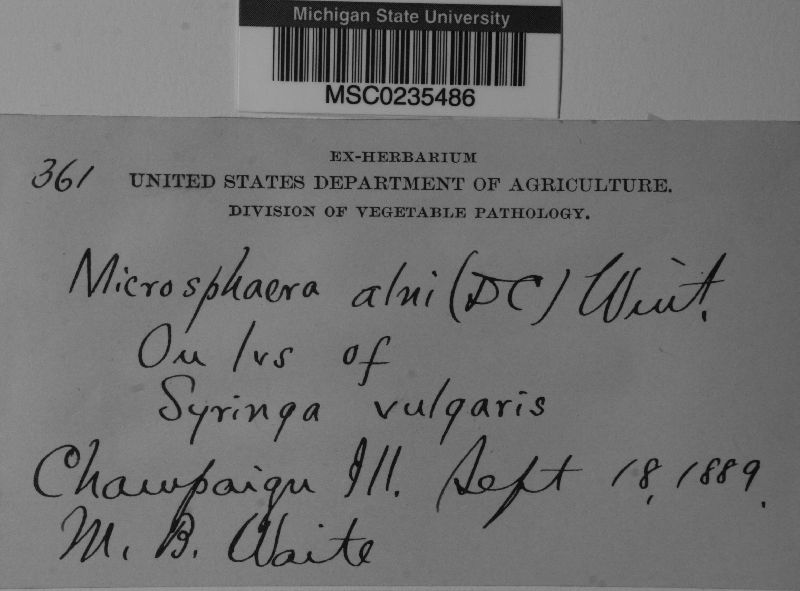 Michigan State University
MSC0235486
EX-HERBARIUM
361 UNITED STATES DEPARTMENT OF AGRICULTURE.
DIVISION OF VEGETABLE PATHOLOGY.
Microsphaera alni (DC) Wint.
On lvs of
Syringa vulgaris
Champaign Ill. Sept 18, 1889.
M. B. Waite